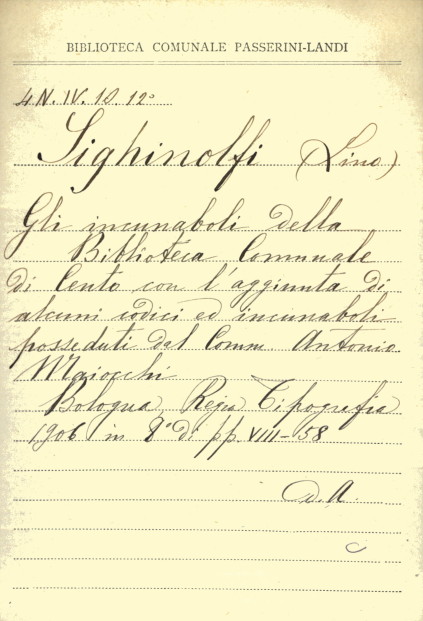 BIBLIOTECA COMUNALE PASSERINI-LANDI
4 N. IV. 10. 12º
Sighinolfi (Lino)
Gli incunaboli della
Biblioteca Comunale
di Cento con l'aggiunta di
alcuni codici ed incunaboli
posseduti dal Comm Antonio
Maiocchi
Bologna, Regia Tipografia
1906 in 8º di pp. VIII-58
D. A.
C